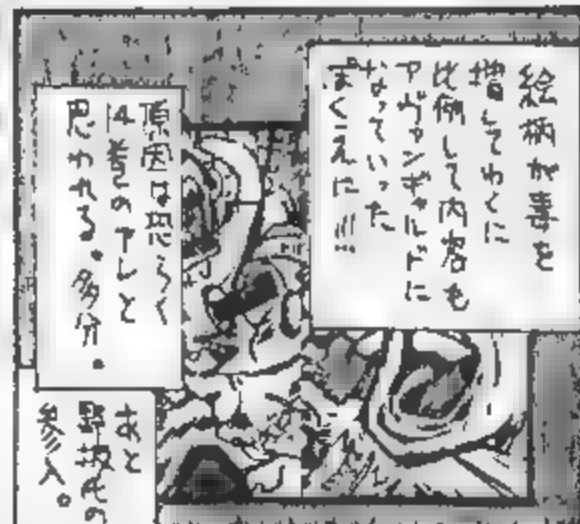 絵柄が毒を
増してゆくに
比例して内容も
アヴァンギャルドに
なっていった
ぼくえに!!!
原因は恐らく
14巻のアレと
思われる。多分。
あと
野坂氏の
参入。